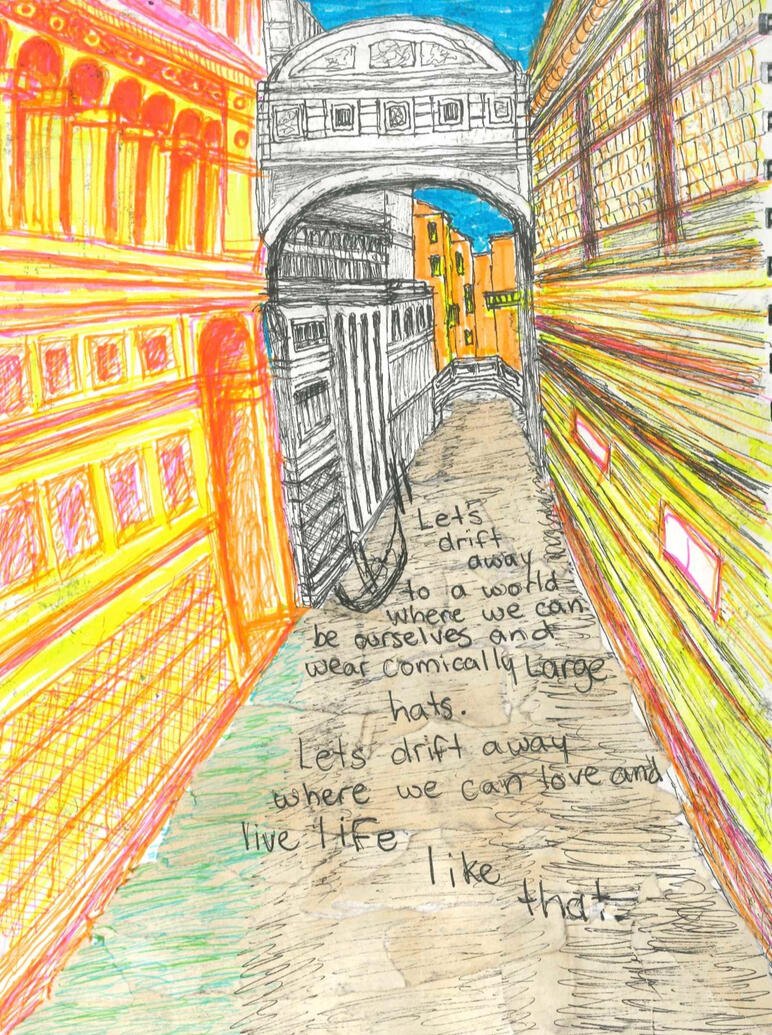 Let's
drift
away
to a world
where we can
be ourselves and
wear comically Large
hats.
Lets drift away
where we can love and
live life
like
that.